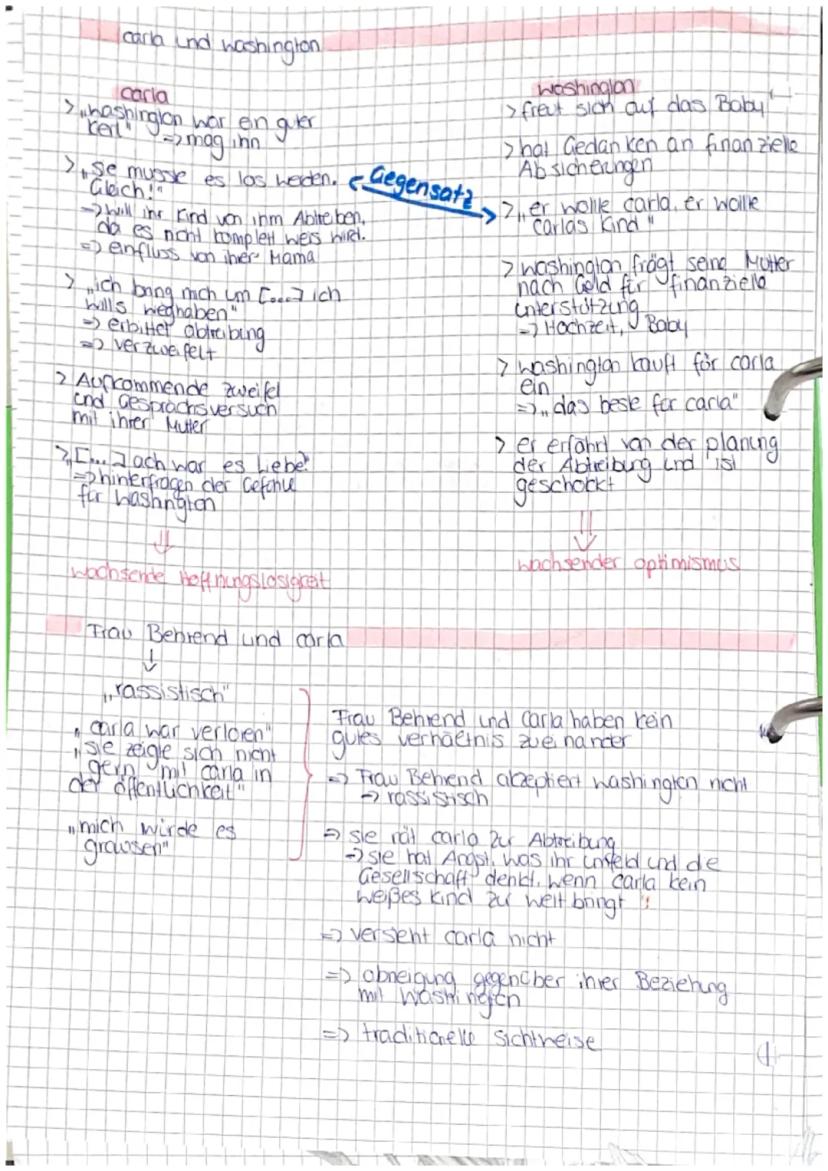 carla und washington
carla
> „washington war ein guter
kerl" => mag ihn
> „sie musste es los werden.
Gleich!"
=> will ihr Kind von ihm Abtreiben,
da es nicht komplett weis wird.
=> einfluss von ihrer Mama
> „ich bring mich um [...] ich
wills weghaben"
=> erbittet abtreibung
=> verzweifelt
> Aufkommende zweifel
und Gesprächsversuch
mit ihrer Mutter
> „[...] ach war es Liebe"
=> hinterfragen der Gefühle
für washington
wachsende Hoffnungslosigkeit
Gegensatz
washington
> freut sich auf das Baby
> hat Gedanken an finanzielle
Absicherungen
> „er wollte carla, er wollte
carlas Kind"
> washington frägt seine Mutter
nach Geld für finanzielle
unterstützung
=> Hochzeit, Baby
> washington kauft für carla
ein
=> „das beste für carla"
> er erfährt von der planung
der Abtreibung und ist
geschockt
wachsender optimismus
Frau Behrend und carla
„rassistisch"
„carla war verloren"
„sie zeigte sich nicht
gern mit carla in
der öffentlichkeit"
„mich würde es
grausen"
Frau Behrend und Carla haben kein
gutes verhältnis zueinander
=> Frau Behrend akzeptiert washington nicht
-> rassistisch
=> sie rät carla zur Abtreibung
-> sie hat Angst, was ihr umfeld und die
Gesellschaft denkt, wenn Carla kein
weißes Kind zur welt bringt !
=> versteht carla nicht
=> abneigung gegenüber ihrer Beziehung
mit washington
=> traditionelle Sichtweise